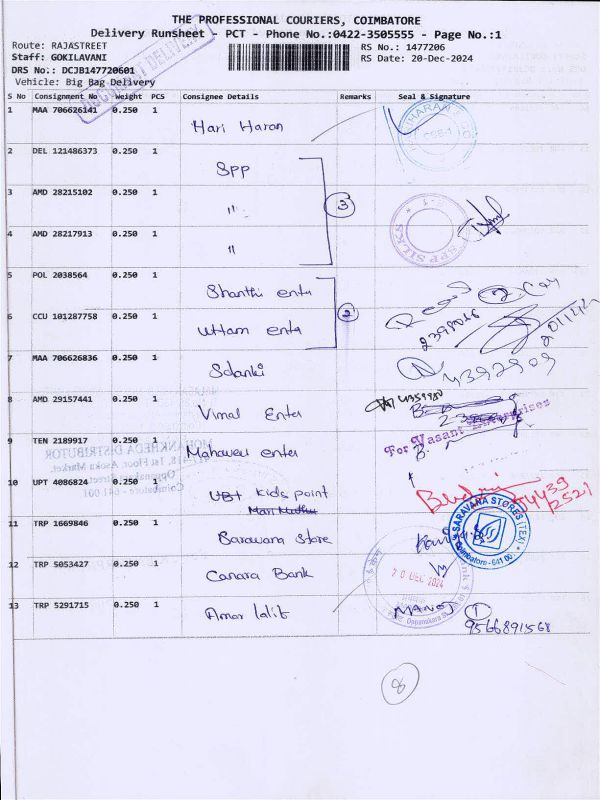 THE PROFESSIONAL COURIERS, COIMBATORE
Delivery Runsheet - PCT - Phone No.:0422-3505555 - Page No.:1
Route: RAJASTREET
RS No.: 1477206
Staff: GOKILAVANI
RS Date: 20-Dec-2024
DRS No.: DCJB147720601
Vehicle: Big Bag Delivery
S No Consignment No Weight PCS Consignee Details Remarks Seal & Signature
1 MAA 706626141 0.250 1 Hari Haran
2 DEL 121486373 0.250 1 SPP
3 AMD 28215102 0.250 1 "
3
SPP SILKS
4 AMD 28217913 0.250 1 "
5 POL 2038564 0.250 1 Shanthi enta
2
6 CCU 101287758 0.250 1 Uttam enta
2398016
20/12/24
7 MAA 706626836 0.250 1 Solanki
4392909
8 AMD 29157441 0.250 1 Vimal Enter
4359980
For Vasant Enterprises
9 TEN 2189917 0.250 1 Mahaveer enter
MOHANKHEDA DISTRIBUTOR
417/418, 1st Floor Asoka Market,
Coimbatore - 641 001
10 UPT 4086824 0.250 1 UBT Kids point
Mari Muthu
11 TRP 1669846 0.250 1 Sarawana Store
SARAVANA STORES (TEX)
Coimbatore - 641 001
12 TRP 5053427 0.250 1 Canara Bank
20 DEC 2024
13 TRP 5291715 0.250 1 Amar lalit
MANOJ 1
9566891568
8